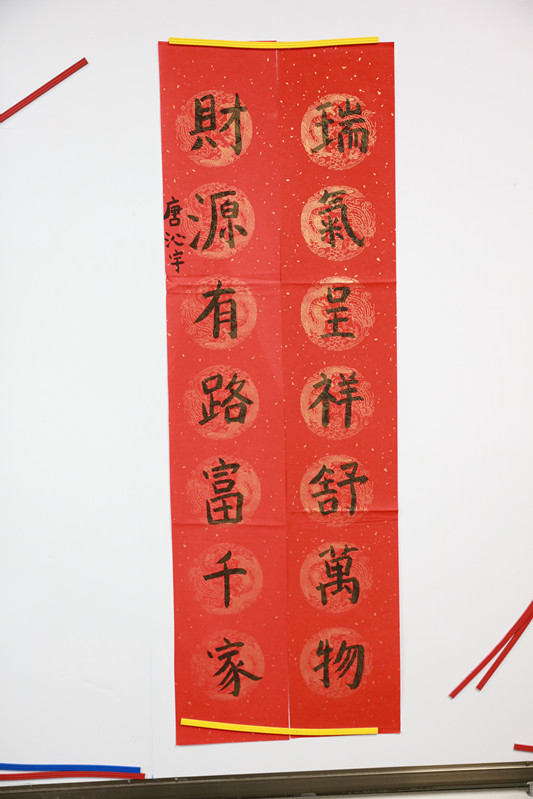 瑞氣呈祥舒萬物
財源有路富千家
唐沁宇